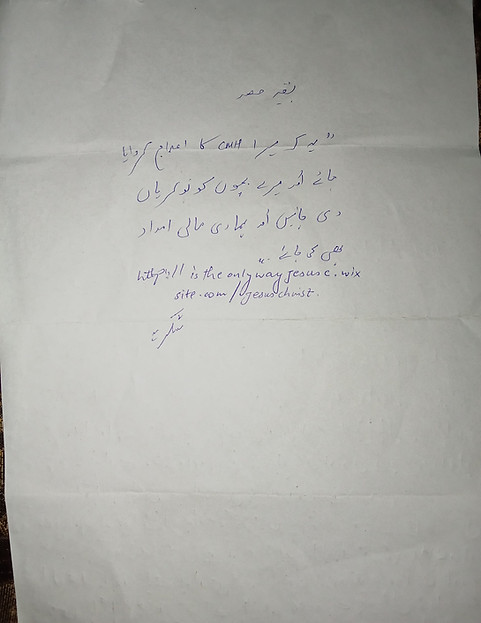 بقیہ حصہ
"یہ کہ میرا CMH کا علاج کروایا
جائے اور میرے بچوں کو نوکریاں
دی جائیں اور ہماری مالی امداد
بھی کی جائے ۔"
https// is the only way jesus c. wix
site.com/jesuschrist.
شکریہ